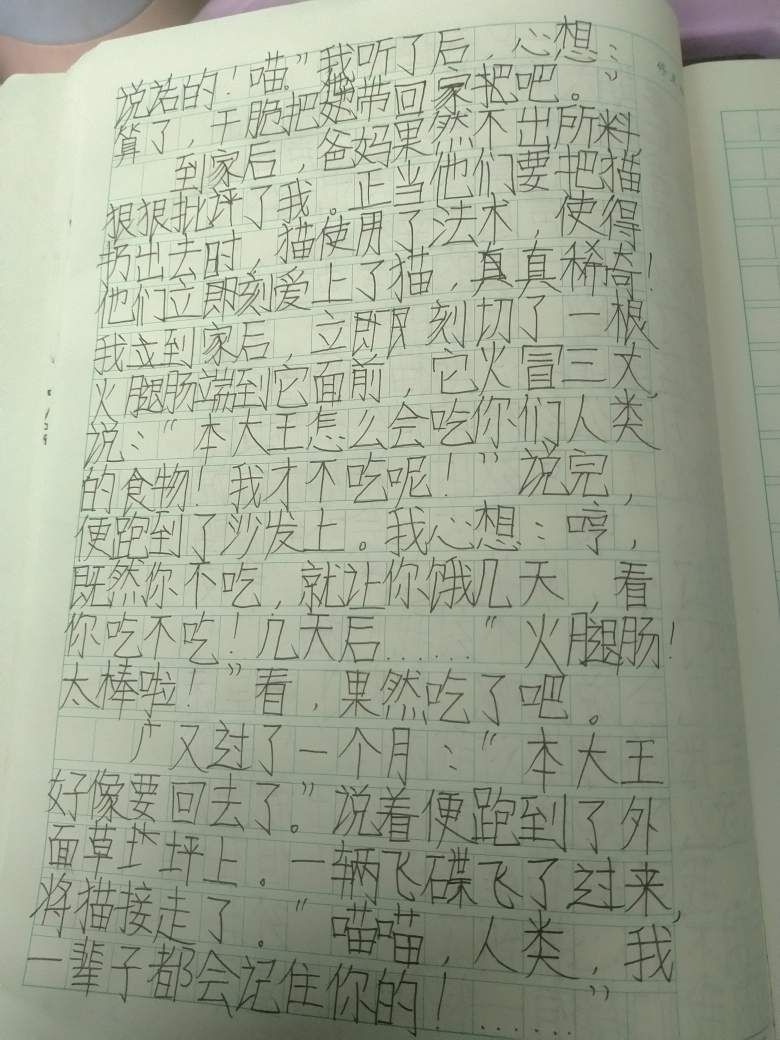 说话的！喵。”我听了后，心想：
算了，干脆把它带回家把吧。”
到家后，爸妈果然不出所料，
狠狠批评了我。正当他们要把猫
扔出去时，猫使用了法术，使得
他们立即刻爱上了猫，真真稀奇！
我立到家后，立即刻切了一根
火腿肠端到它面前，它火冒三丈，
说：“本大王怎么会吃你们人类
的食物！我才不吃呢！”说完，
便跑到了沙发上。我心想：哼，
既然你不吃，就让你饿几天，看
你吃不吃！几天后……“火腿肠！
太棒啦！”看，果然吃了吧。
广又过了一个月：“本大王
好像要回去了。”说着便跑到了外
面草坪上。一辆飞碟飞了过来，
将猫接走了。“喵喵，人类，我
一辈子都会记住你的！……”